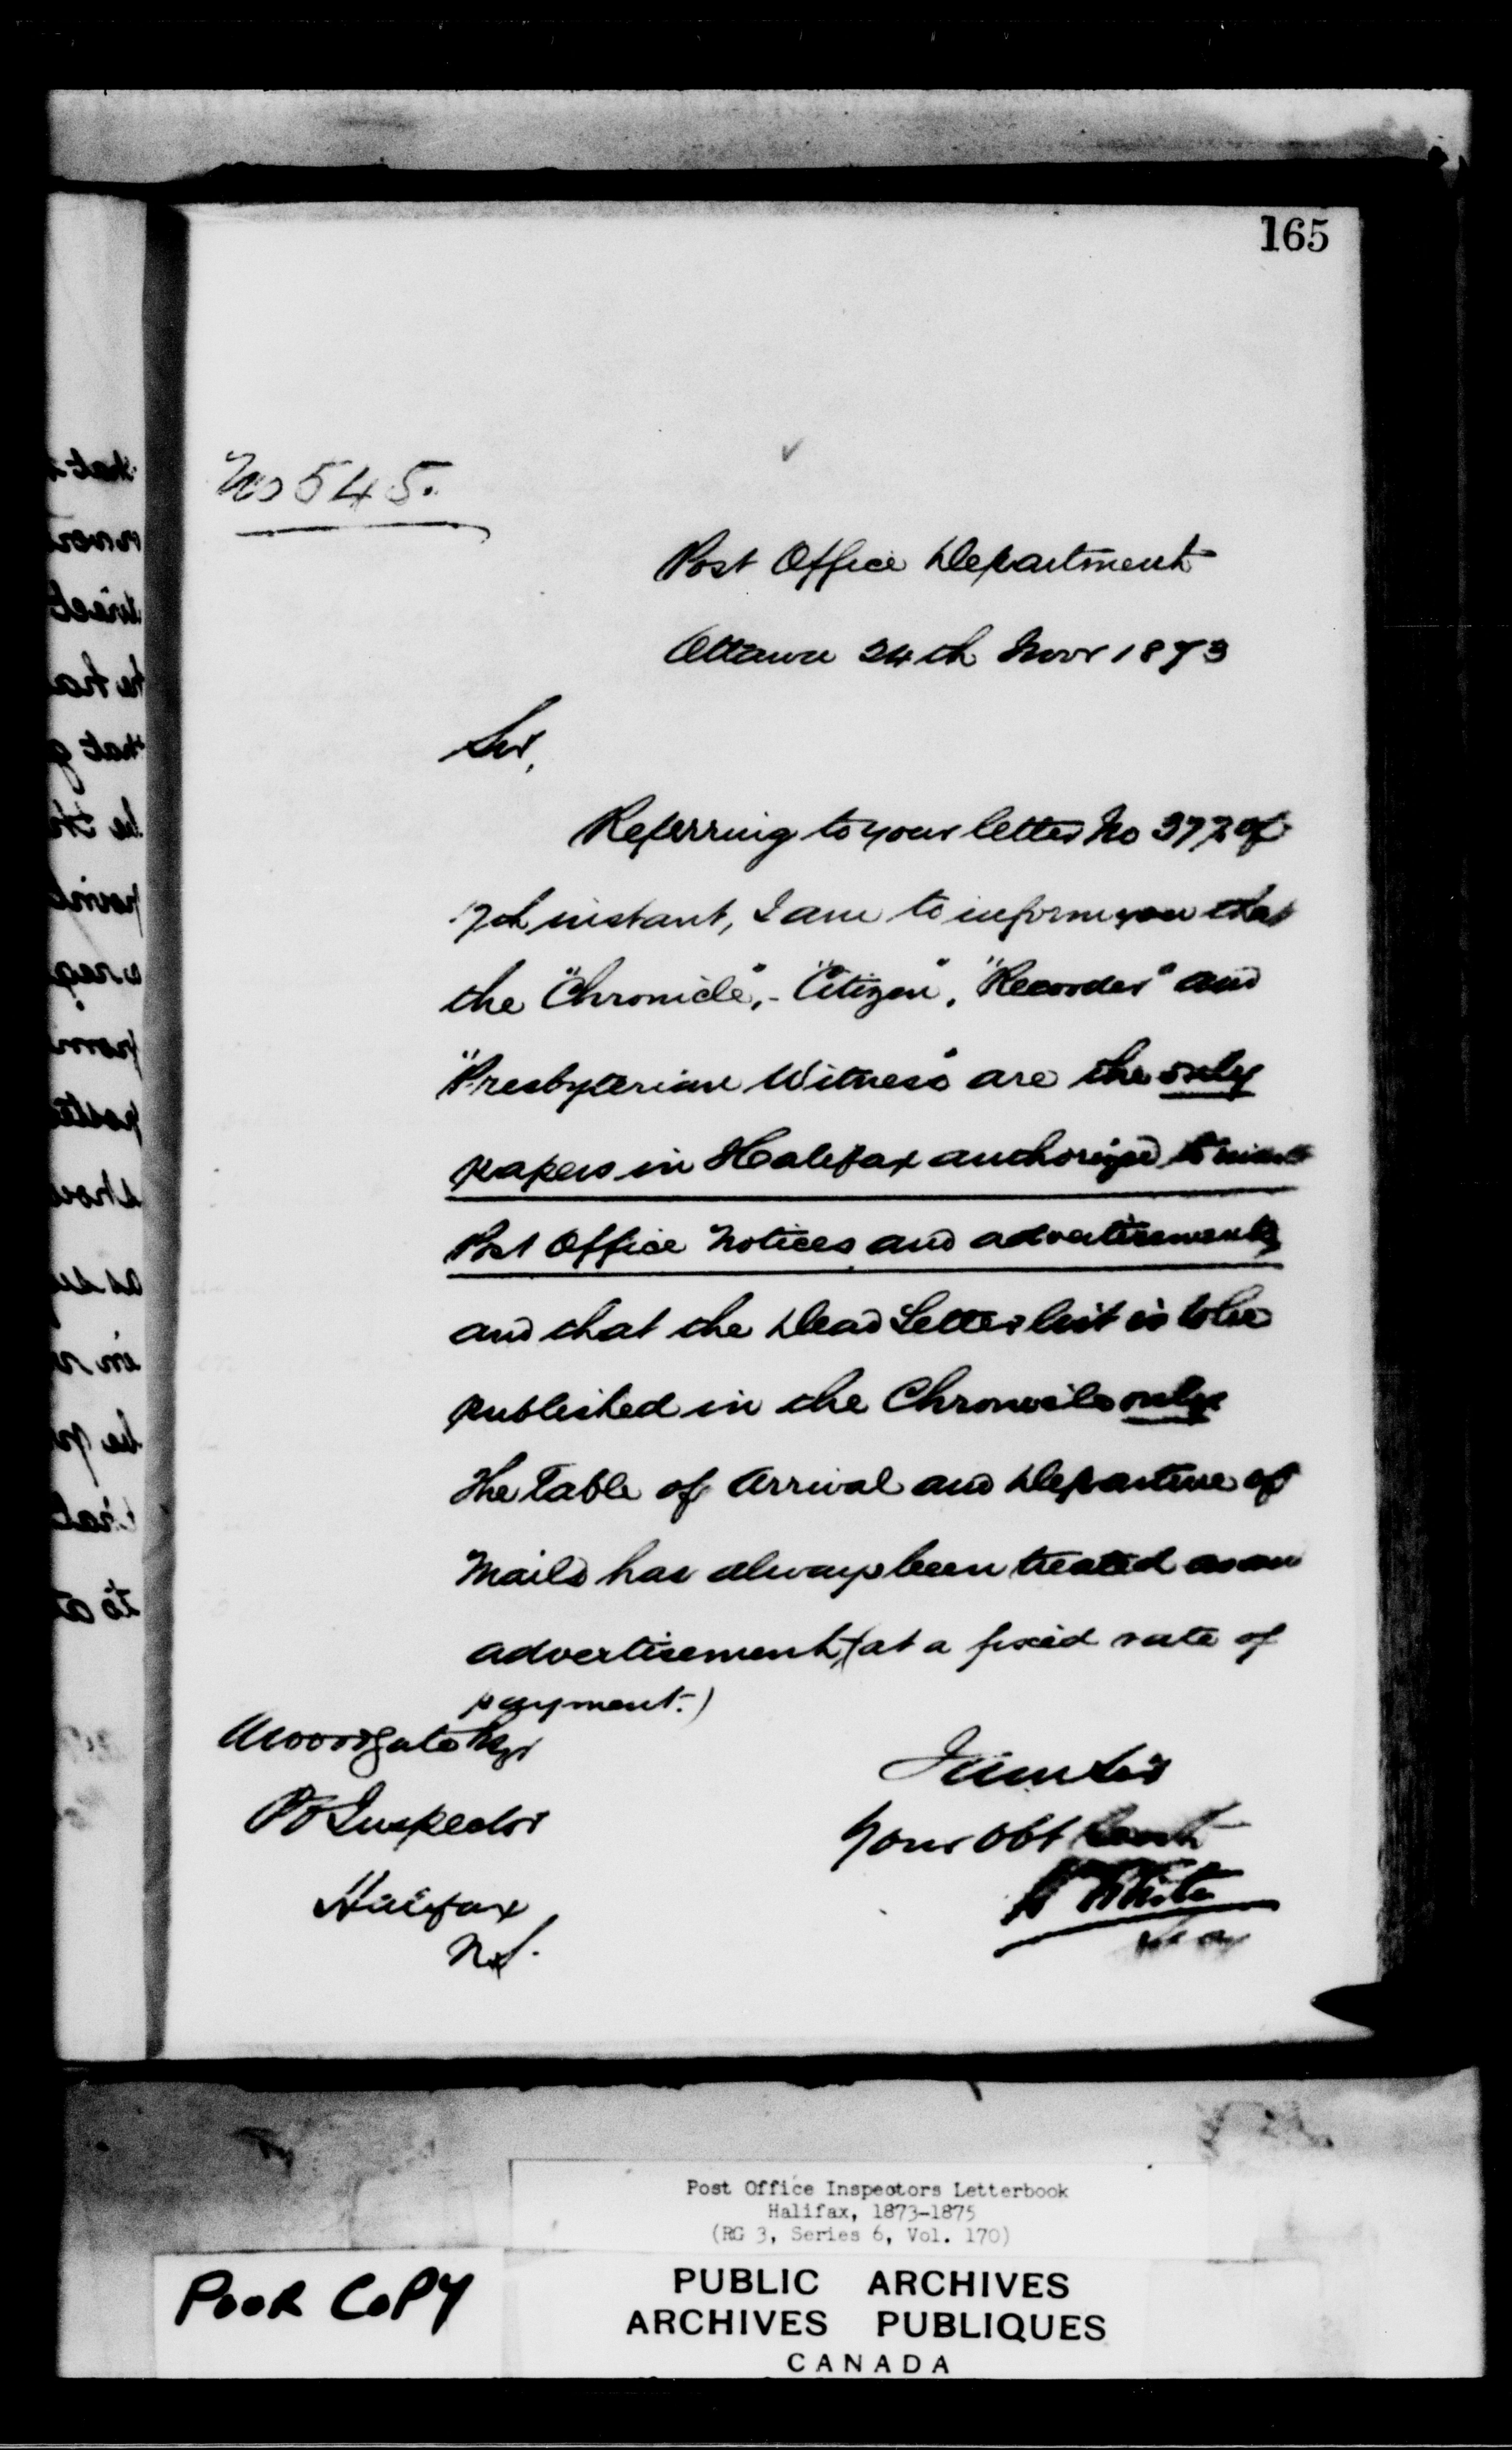 165
No 545.
Post Office Department
Ottawa 24th Novr 1873
Sir,
Referring to your letter No 372 of
17th instant, I am to inform you that
the "Chronicle", - "Citizen", "Recorder" and
"Presbyterian Witness" are the only
papers in Halifax authorized to insert
Post Office Notices and advertisements
and that the Dead Letter list is to be
published in the Chronicle only
The Table of Arrival and Departure of
Mails has always been treated as an
advertisement, (at a fixed rate of
payment.)
A Woodgate Esqr
PO Inspector
Halifax
N.S.
I am Sir
Your Obt Servt
White
Post Office Inspectors Letterbook
Halifax, 1873-1875
(RG 3, Series 6, Vol. 170)
POOR COPY
PUBLIC ARCHIVES
ARCHIVES PUBLIQUES
CANADA